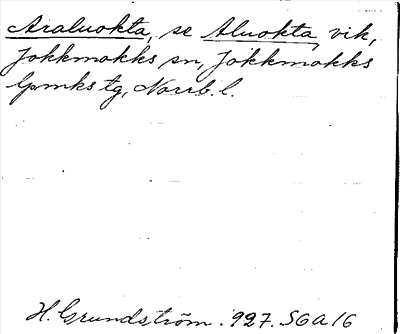 Araluokta, se Aluokta vik,
Jokkmokks sn, Jokkmokks
lpmks tg, Norrb. l.
H. Grundström. 927. SGA 16